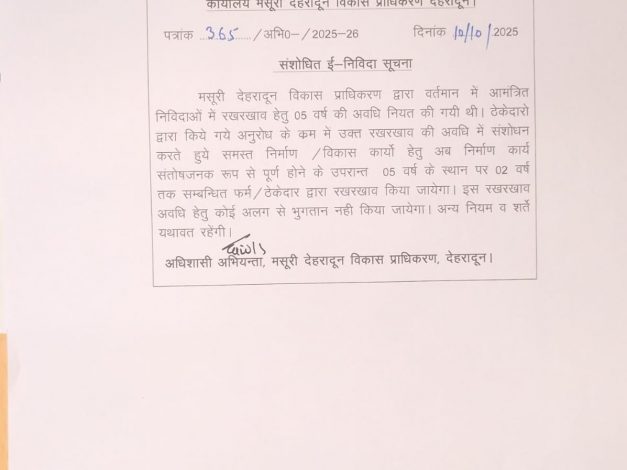 कार्यालय मसूरी देहरादून विकास प्राधिकरण देहरादून।
पत्रांक ...365...../अभि0–/2025–26 दिनांक 10/10/2025
संशोधित ई–निविदा सूचना
मसूरी देहरादून विकास प्राधिकरण द्वारा वर्तमान में आमंत्रित
निविदाओं में रखरखाव हेतु 05 वर्ष की अवधि नियत की गयी थी। ठेकेदारो
द्वारा किये गये अनुरोध के कम में उक्त रखरखाव की अवधि में संशोधन
करते हुये समस्त निर्माण /विकास कार्यो हेतु अब निर्माण कार्य
संतोषजनक रूप से पूर्ण होने के उपरान्त 05 वर्ष के स्थान पर 02 वर्ष
तक सम्बन्धित फर्म/ठेकेदार द्वारा रखरखाव किया जायेगा। इस रखरखाव
अवधि हेतु कोई अलग से भुगतान नही किया जायेगा। अन्य नियम व शर्ते
यथावत रहेंगी।
अधिशासी अभियन्ता, मसूरी देहरादून विकास प्राधिकरण, देहरादून।